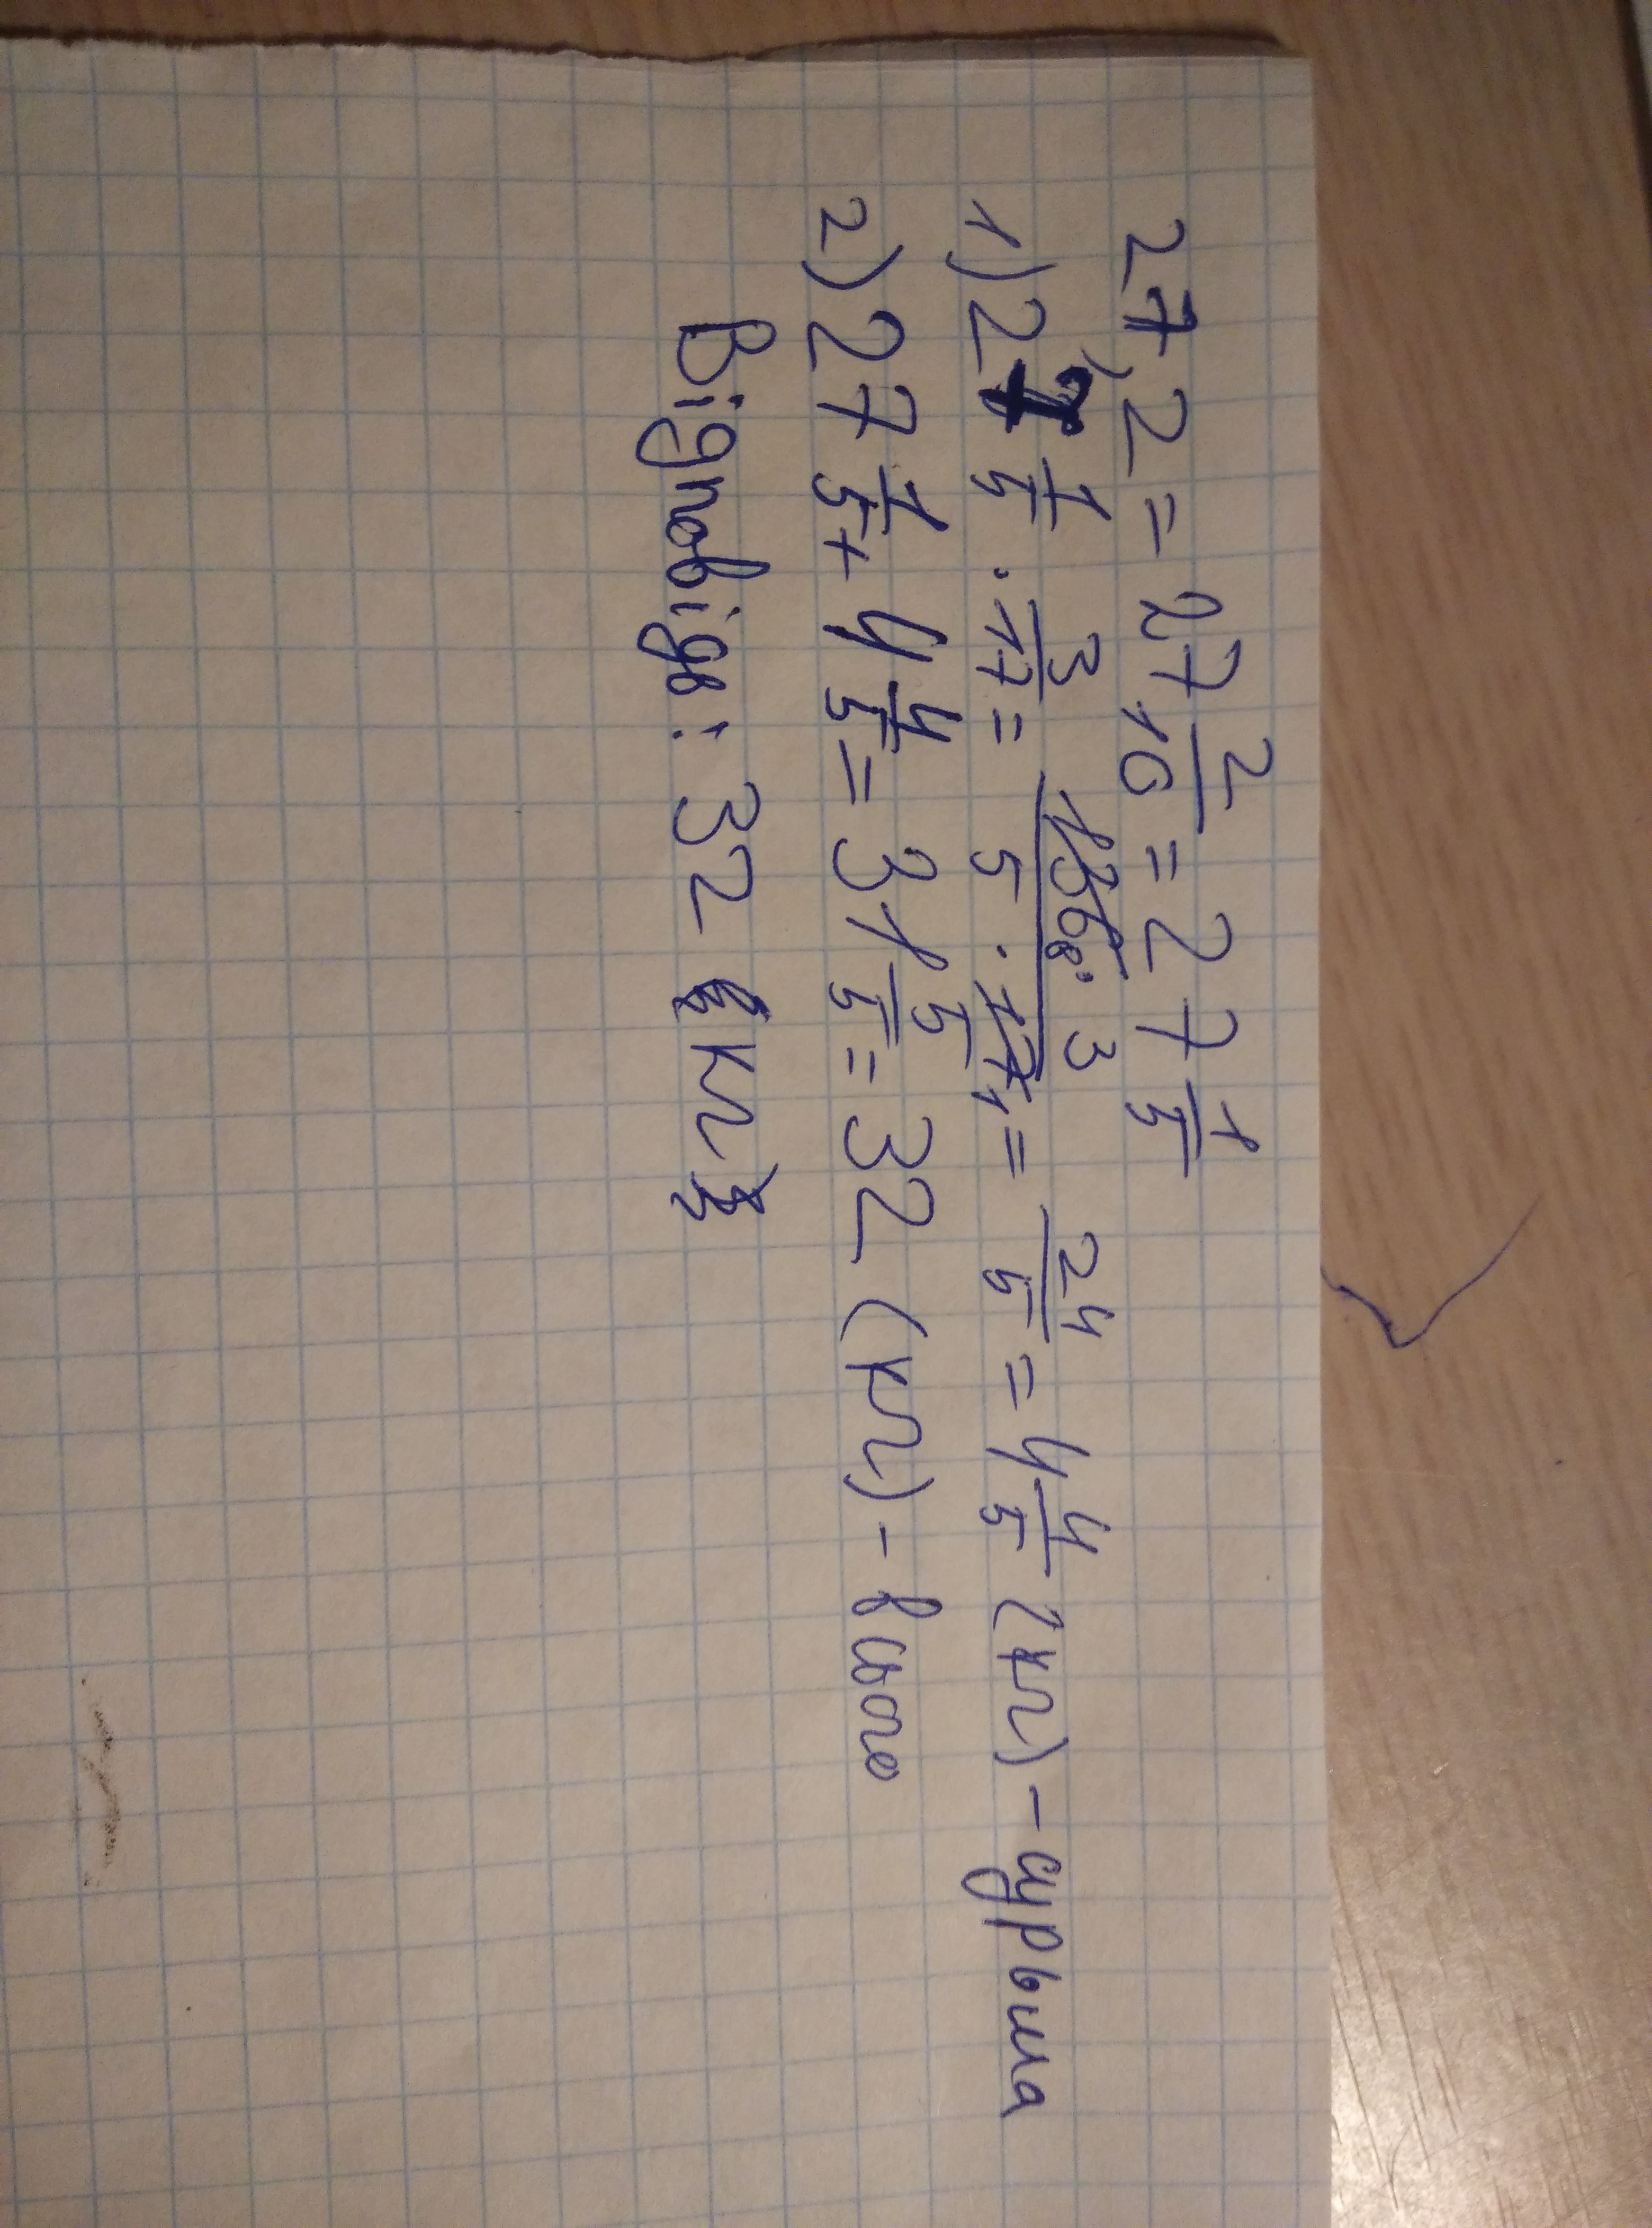 27,2 = 27 2/10 = 27 1/5
1) 27 1/5 · 3/17 = 136 8 · 3 / 5 · 17 1 = 24/5 = 4 4/5 (кг) - сурьма
2) 27 1/5 + 4 4/5 = 31 5/5 = 32 (кг) - всього
Відповідь: 32 кг